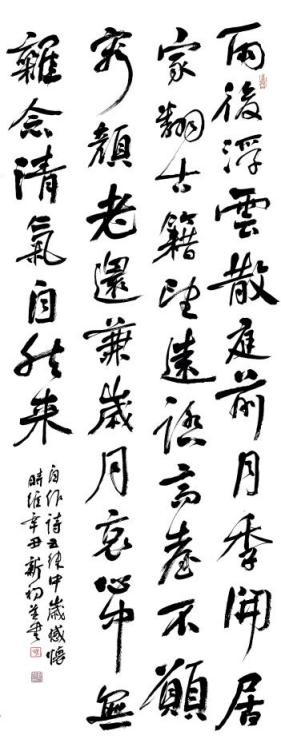 雨後浮雲散庭前月季開居
家翻古籍望遠高臺不願
容顏老還兼歲月哀心中無
雜念清氣自然来
自作詩五律中歲感懷
時維辛丑